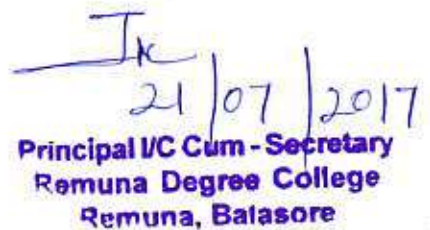 21/07/2017
Principal I/C Cum - Secretary
Remuna Degree College
Remuna, Balasore